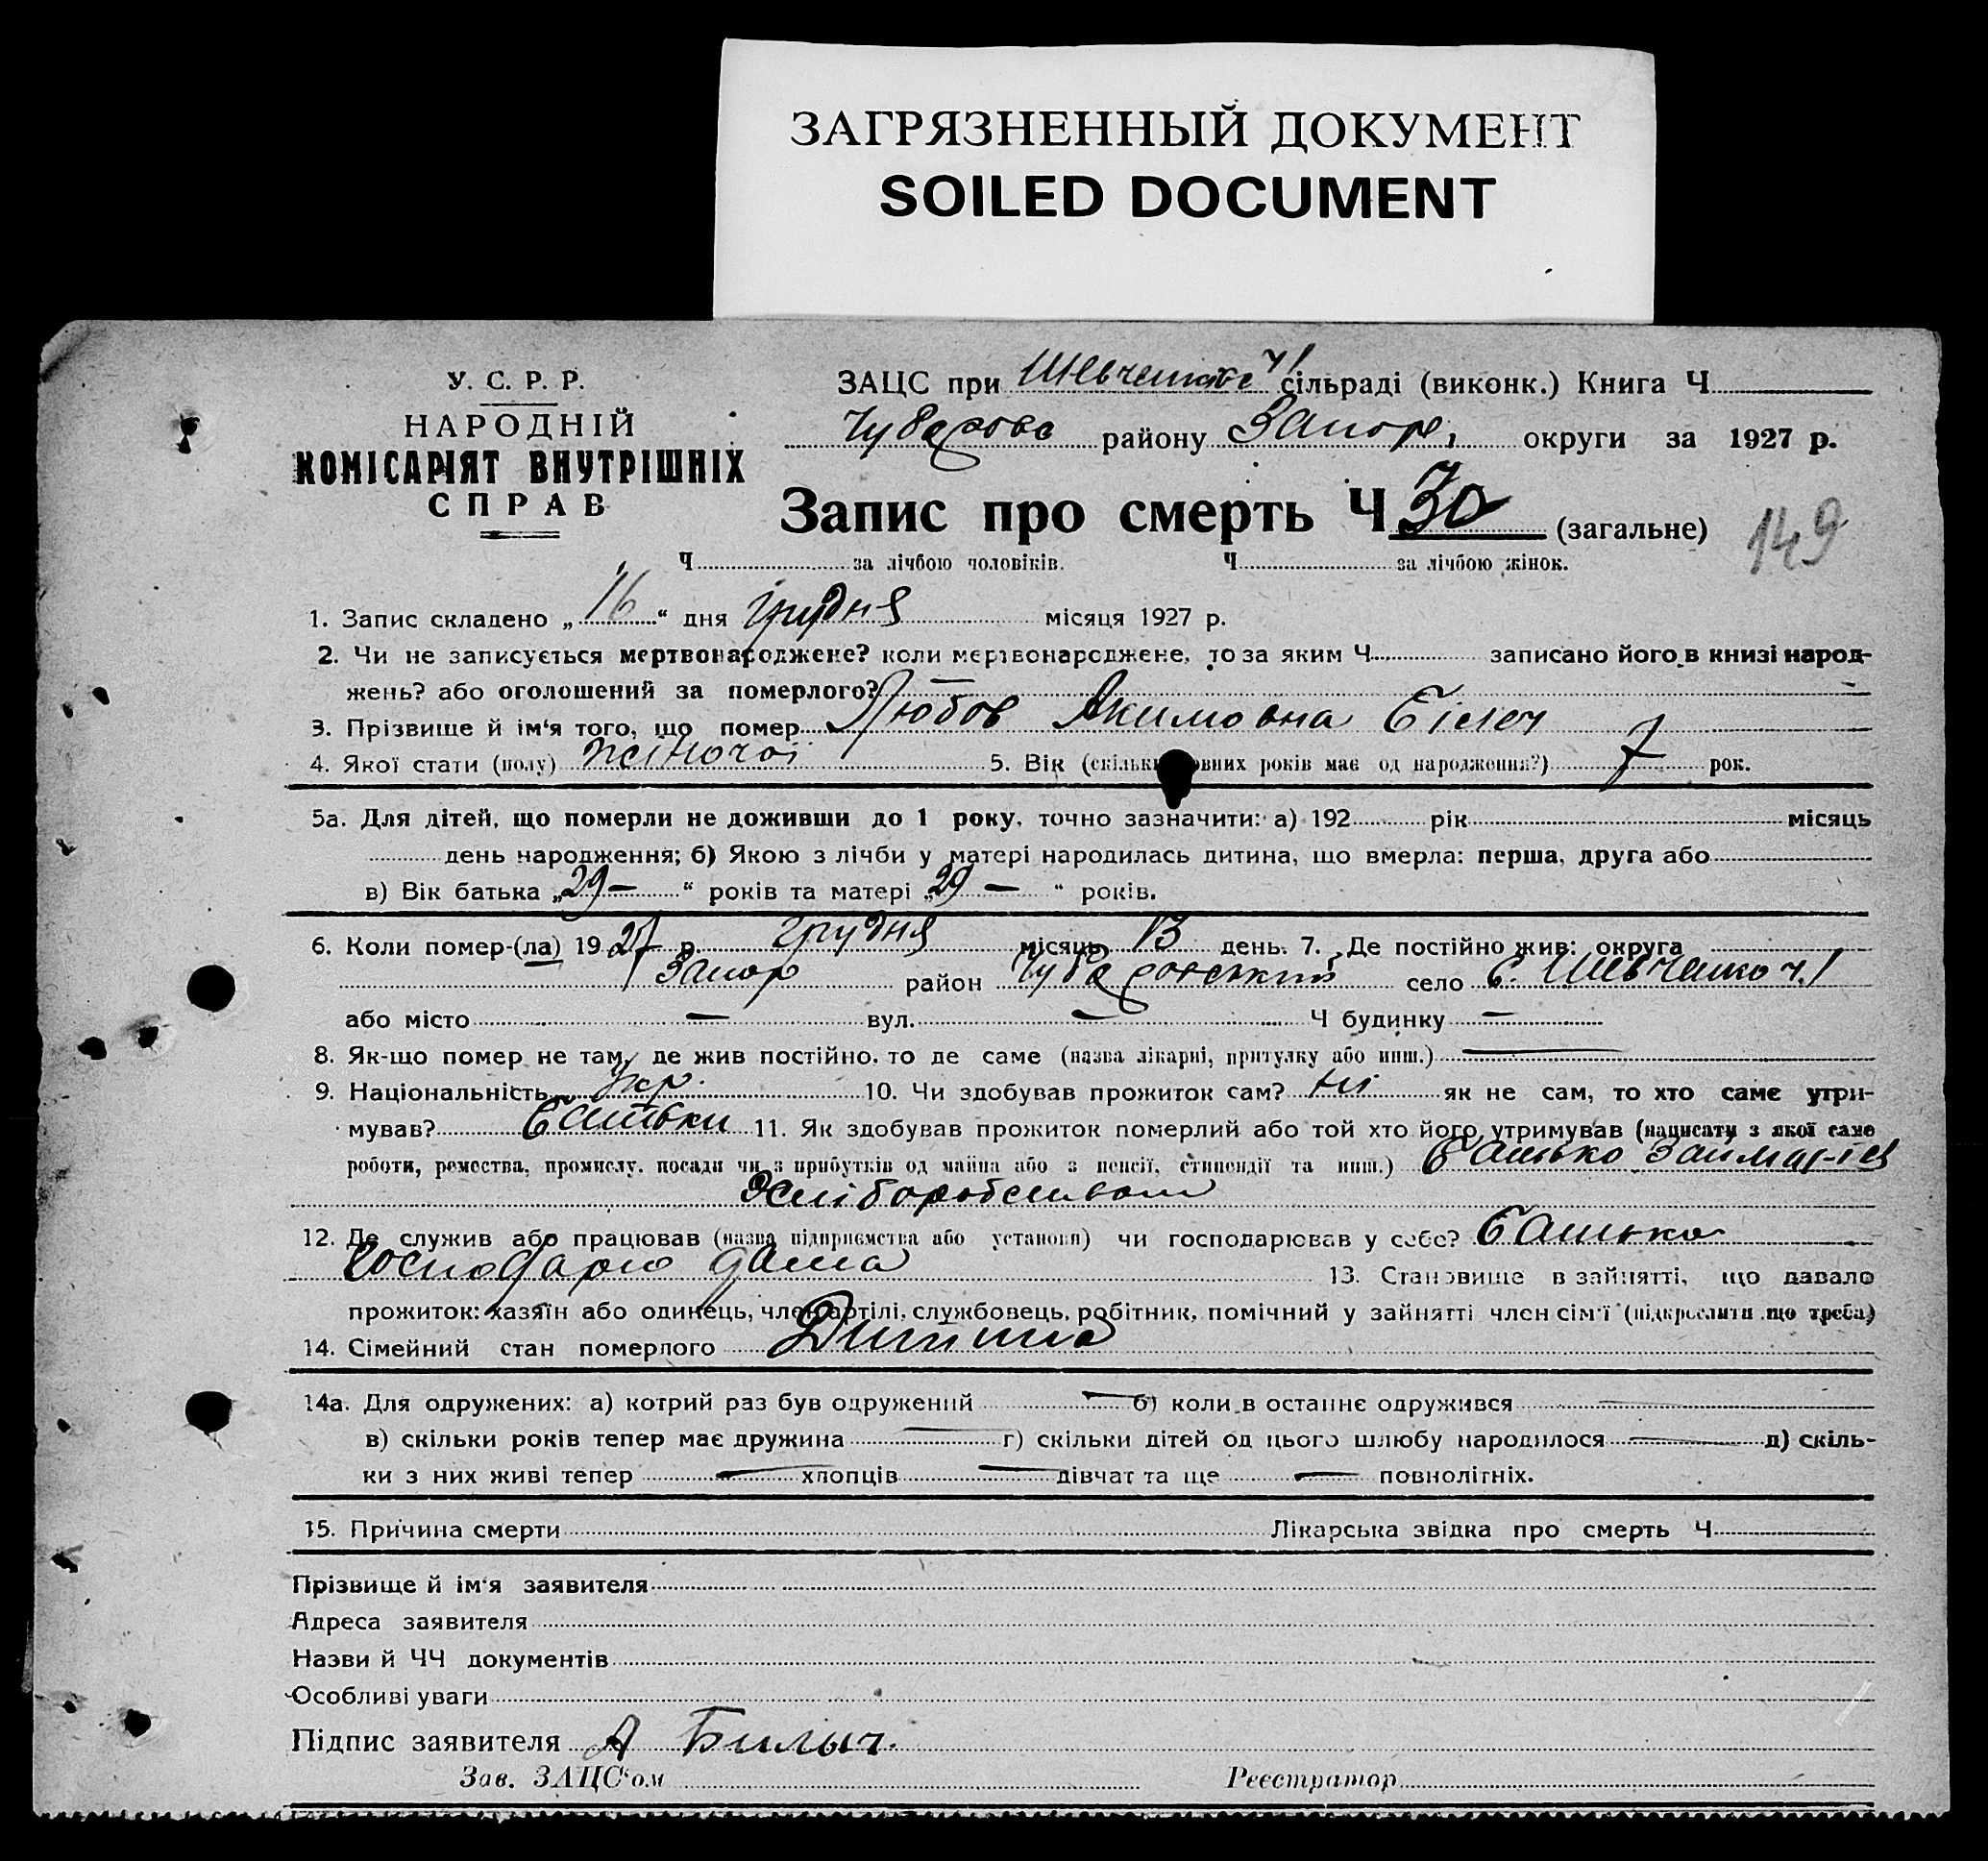 ЗАГРЯЗНЕННЫЙ ДОКУМЕНТ
SOILED DOCUMENT
У. С. Р. Р.
НАРОДНІЙ
КОМІСАРІЯТ ВНУТРІШНІХ
СПРАВ
ЗАЦС при Шевченкове ч1 сільраді (виконк.) Книга Ч
Чубарове району Запор. округи за 1927 р.
Запис про смерть Ч 30 (загальне) 149
Ч за лічбою чоловіків. Ч за лічбою жінок.
1. Запис складено „16“ дня грудня місяця 1927 р.
2. Чи не записується мертвонароджене? коли мертвонароджене, то за яким Ч записано його в книзі народ-
жень? або оголошений за померлого? —
3. Прізвище й ім‘я того, що помер Любов Акимовна Біліч
4. Якої стати (полу) жіночої 5. Вік (скільки повних років має од народження?) 7 рок.
5а. Для дітей, що померли не доживши до 1 року, точно зазначити: а) 192 рік місяць
день народження; б) Якою з лічби у матері народилась дитина, що вмерла: перша, друга або
в) Вік батька „29 —“ років та матері „29 —“ років.
6. Коли помер-(ла) 1927 р. грудня місяць 13 день. 7. Де постійно жив: округа
Запор район Чубаровський село с. Шевченко ч. 1
або місто — вул. — Ч будинку —
8. Як-що помер не там, де жив постійно, то де саме (назва лікарні, притулку або инш.) —
9. Національність укр. 10. Чи здобував прожиток сам? ні як не сам, то хто саме утри-
мував? батьки 11. Як здобував прожиток померлий або той хто його утримував (написати з якої саме
роботи, ремества, промислу, посади чи з прибутків од майна або з пенсії, стипендії та инш.) батько займався
хліборобством
12. Де служив або працював (назва підприємства або установи) чи господарював у себе? батько
господарює дома 13. Становище в зайнятті, що давало
прожиток: хазяїн або одинець, член артілі, службовець, робітник, помічний у зайнятті член сім‘ї (підкреслити що треба)
14. Сімейний стан померлого Дитина
14а. Для одружених: а) котрий раз був одружений — б) коли в останнє одружився —
в) скільки років тепер має дружина — г) скільки дітей од цього шлюбу народилося — д) скіль-
ки з них живі тепер — хлопців — дівчат та ще — повнолітніх.
15. Причина смерти Лікарська звідка про смерть Ч
Прізвище й ім‘я заявителя
Адреса заявителя
Назви й ЧЧ документів
Особливі уваги
Підпис заявителя А Билыч.
Зав. ЗАЦС‘ом Реєстратор